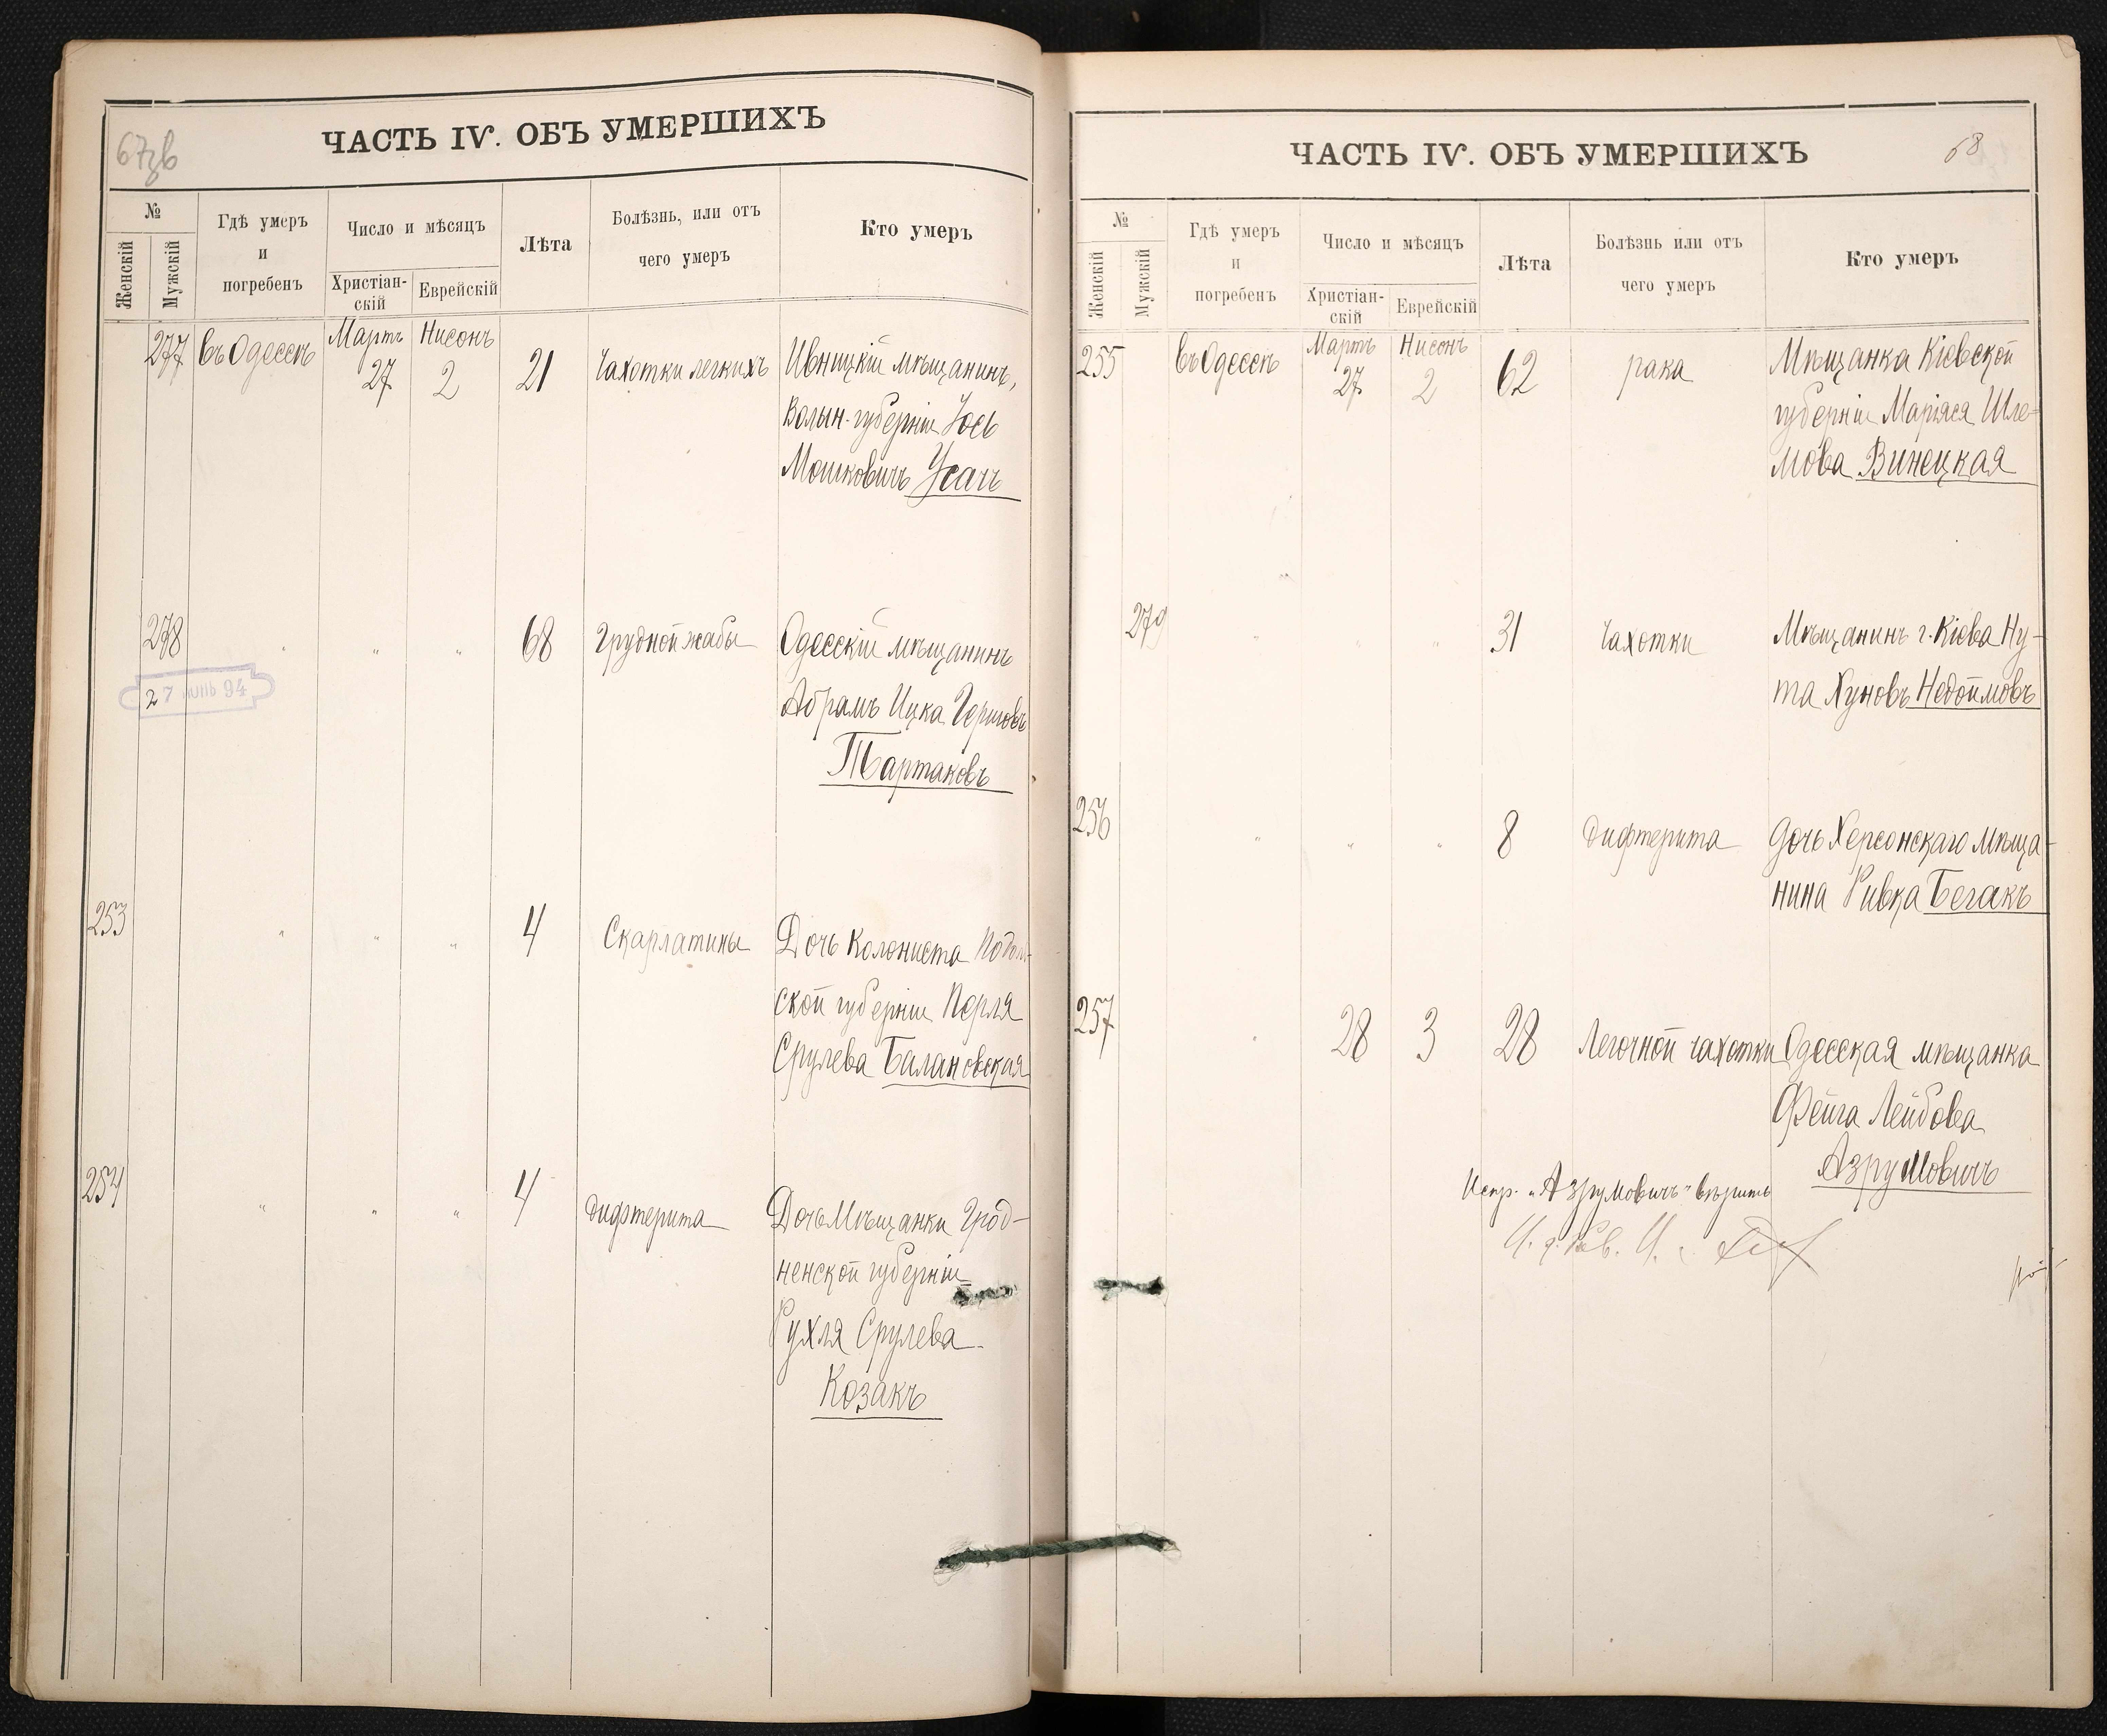 67зв
ЧАСТЬ IV. ОБЪ УМЕРШИХЪ
№
Женскій
Мужскій
Гдѣ умеръ
и
погребенъ
Число и мѣсяцъ
Христіан-
скій
Еврейскій
Лѣта
Болѣзнь, или отъ
чего умеръ
Кто умеръ
277 въ Одессѣ Мартъ 27 Нисонъ 2 21 Чахотки легкихъ Ивницкій мѣщанинъ,
Волын. губерніи Іось
Мошковичъ Усачъ
278 " " " 68 Грудной жабы Одесскій мѣщанинъ
27 94
Абрамъ Ицка Гершовъ
Тартаковъ
253 " " " 4 Скарлатины Дочь колониста Подоль-
ской губерніи Перля
Срулева Балановская
254 " " " 4 Дифтерита Дочь Мѣщанки Грод-
ненской губерніи
Рухля Срулева
Козакъ
68
ЧАСТЬ IV. ОБЪ УМЕРШИХЪ
№
Женскій
Мужскій
Гдѣ умеръ
и
погребенъ
Число и мѣсяцъ
Христіан-
скій
Еврейскій
Лѣта
Болѣзнь или отъ
чего умеръ
Кто умеръ
255 въ Одессѣ Мартъ 27 Нисонъ 2 62 рака Мѣщанка Кіевской
губерніи Маріяся Шле-
мова Винецкая
279 " " " 31 Чахотки Мѣщанинъ г. Кіева Ну-
та Хуновъ Недоймовъ
256 " " " 8 Дифтерита Дочь Херсонскаго мѣща-
нина Ривка Бегакъ
257 " 28 3 28 Легочной чахотки Одесская мѣщанка
Фейга Лейбова
Азрумовичъ
Испр. "Азрумовичъ" вѣрить